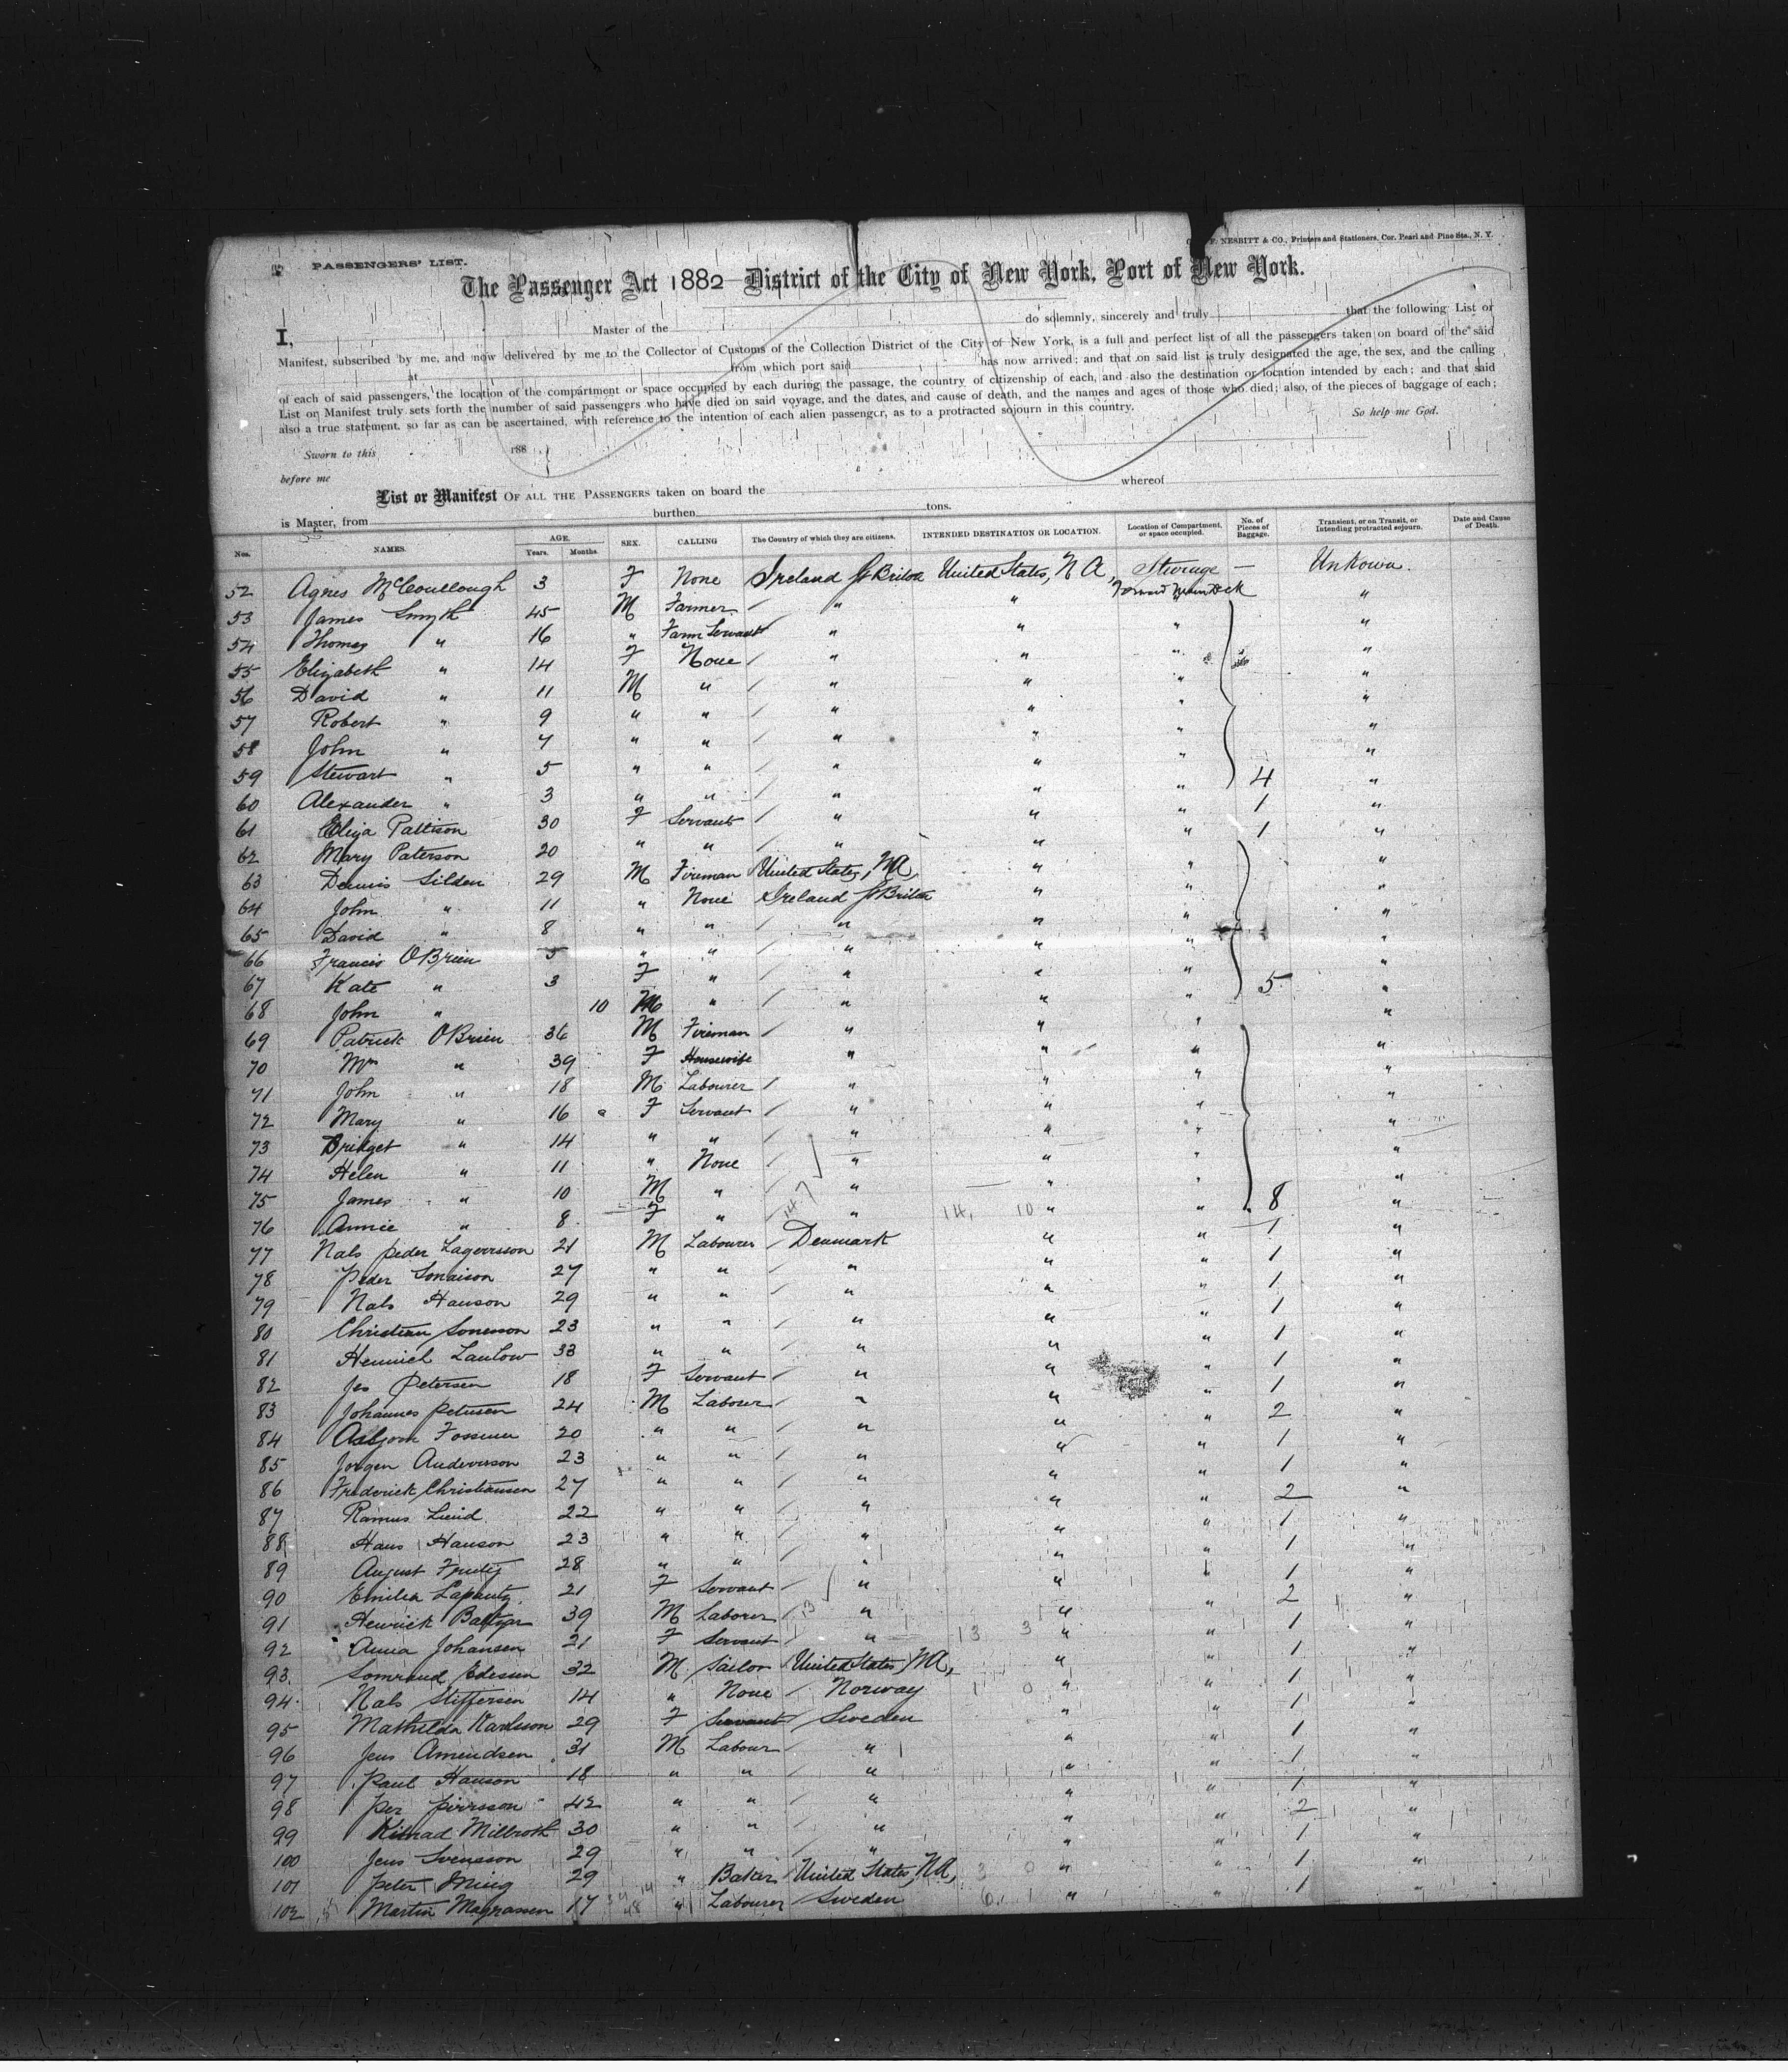 PASSENGERS' LIST.
F. NESBITT & CO., Printers and Stationers, Cor. Pearl and Pine Sts., N. Y.
The Passenger Act 1882 District of the City of New York, Port of New York.
I, Master of the do solemnly, sincerely and truly that the following List or
Manifest, subscribed by me, and now delivered by me to the Collector of Customs of the Collection District of the City of New York, is a full and perfect list of all the passengers taken on board of the said
at from which port said has now arrived; and that on said list is truly designated the age, the sex, and the calling
of each of said passengers, the location of the compartment or space occupied by each during the passage, the country of citizenship of each, and also the destination or location intended by each; and that said
List or Manifest truly sets forth the number of said passengers who have died on said voyage, and the dates, and cause of death, and the names and ages of those who died; also, of the pieces of baggage of each;
also a true statement, so far as can be ascertained, with reference to the intention of each alien passenger, as to a protracted sojourn in this country. So help me God.
Sworn to this 188
before me
List or Manifest OF ALL THE PASSENGERS taken on board the whereof
is Master, from burthen tons.
Nos. NAMES. AGE. Years. Months. SEX. CALLING The Country of which they are citizens. INTENDED DESTINATION OR LOCATION. Location of Compartment, or space occupied. No. of Pieces of Baggage. Transient, or on Transit, or Intending protracted sojourn. Date and Cause of Death.
52 Agnes McCoullough 3 F None Ireland G Britn United States, N A, Steerage — Unkown.
53 James Smyth 45 M Farmer " " Forward Main Deck "
54 Thomas " 16 " Farm Servant " " " "
55 Elizabeth " 14 F None " " " "
56 David " 11 M " " " " "
57 Robert " 9 " " " " " "
58 John " 7 " " " " " "
59 Stewart " 5 " " " " " 4 "
60 Alexander " 3 " " " " " 1 "
61 Eliza Pattison 30 F Servant " " " 1 "
62 Mary Paterson 20 " " " " "
63 Dennis Silden 29 M Fireman United States, NA, " " "
64 John " 11 " None Ireland G Britn " " "
65 David " 8 " " " " " "
66 Francis OBrien 5 " " " " " "
67 Kate " 3 F " " " " 5 "
68 John " 10 M " " " " "
69 Patrick OBrien 36 M Fireman " " " "
70 Mrs " 39 F Housewife " " " "
71 John " 18 M Labourer " " " "
72 Mary " 16 F Servant " " " "
73 Bridget " 14 " " " " " "
74 Helen " 11 " None " " " "
75 James " 10 M " " " " 8 "
76 Annie " 8 F " " " " 1 "
77 Nals Peder Lagerrsson 21 M Labourer Denmark " " 1 "
78 Peder Sonaison 27 " " " " " 1 "
79 Nals Hanson 29 " " " " " 1 "
80 Christian Soneson 23 " " " " " 1 "
81 Heinrich Lanlow 33 " " " " " 1 "
82 Jes Petersen 18 F Servant " " " 1 "
83 Johannes Petersen 24 M Labourer " " " 2 "
84 Asbjorn 20 " " " " " 1 "
85 Jorgen Anderrson 23 " " " " " 1 "
86 Frederick Christiansen 27 " " " " " 2 "
87 Ramus 22 " " " " " 1 "
88 Hans Hanson 23 " " " " " 1 "
89 August 28 " " " " " 1 "
90 Emilia 21 F Servant " " " 2 "
91 Henrick 39 M Laborer " " " 1 "
92 Anna Johansen 21 F Servant " " " 1 "
93. Edessen 32 M Sailor United States NA, " " 1 "
94. Nals Stiffersen 14 " None Norway " " 1 "
95 Mathilda Karlsson 29 F Servant Sweden " " 1 "
96 Jens Amendsen 31 M Labour " " " 1 "
97 Paul Hanson 18 " " " " " 1 "
98 Per Pirrsson 42 " " " " " 2 "
99 Millroth 30 " " " " " 1 "
100 Jens Svensson 29 " " " " " 1 "
101 Peter 29 " Baker United States, NA, " " 1 "
102 Martin Magnassen 17 " Labourer Sweden " " "